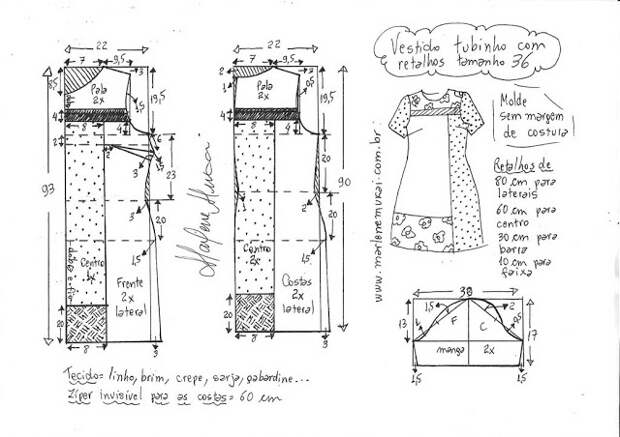 Vestido tubinho com
retalhos tamanho 36
Molde
sem margem
de costura!
Retalhos de
80 cm para
laterais
60 cm para
centro
30 cm para
barra
10 cm para
faixa
www.marlenemukai.com.br
Marlene Mukai
22
7
9,5
3
8,5
Pala
2x
19,5
1,5
4
8
4
2
2
3
6
93
23
3
20
1,5
Centro
1x
dobra e fio
Frente
2x
lateral
20
8
3
22
7
9,5
2
3
1
Pala
2x
19,5
4
8
4
90
1
3
20
1,5
Centro
2x
Costas
2x
lateral
20
8
3
38
1,5
2
13
F
C
17
manga
2x
1,5
1,5
Tecido= linho, brim, crepe, sarja, gabardine...
Ziper invisivel para as costas= 60 cm